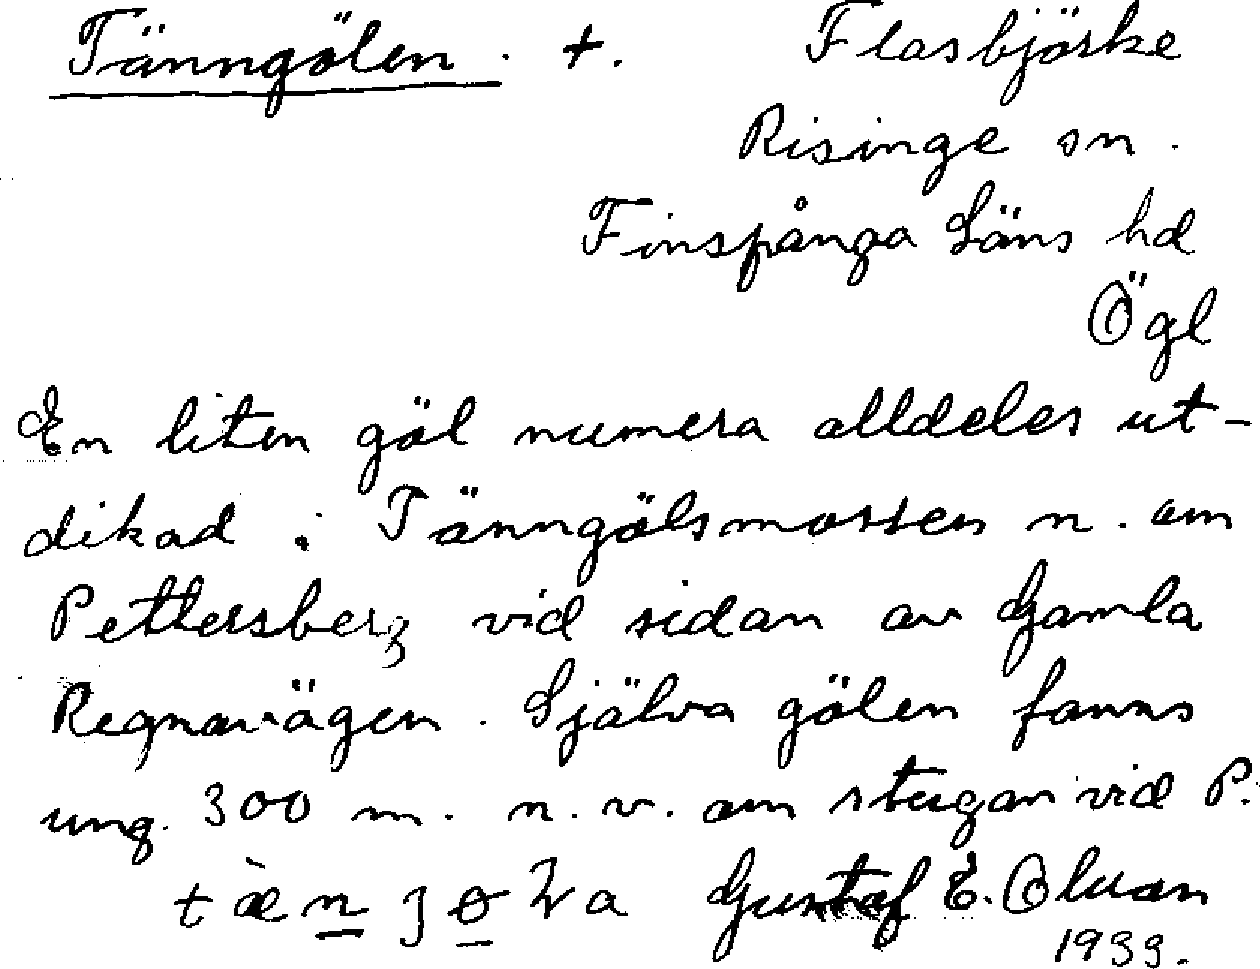 Tänngölen. +. Flasbjörke
Risinge sn.
Finspånga Läns hd
Ögl
En liten göl numera alldeles ut-
dikad i Tänngölsmossen n. om
Pettersberg vid sidan av Gamla
Regnavägen. Själva gölen fanns
ung. 300 m. n. v. om stugan vid P.
Gustaf E. Olson
1939.